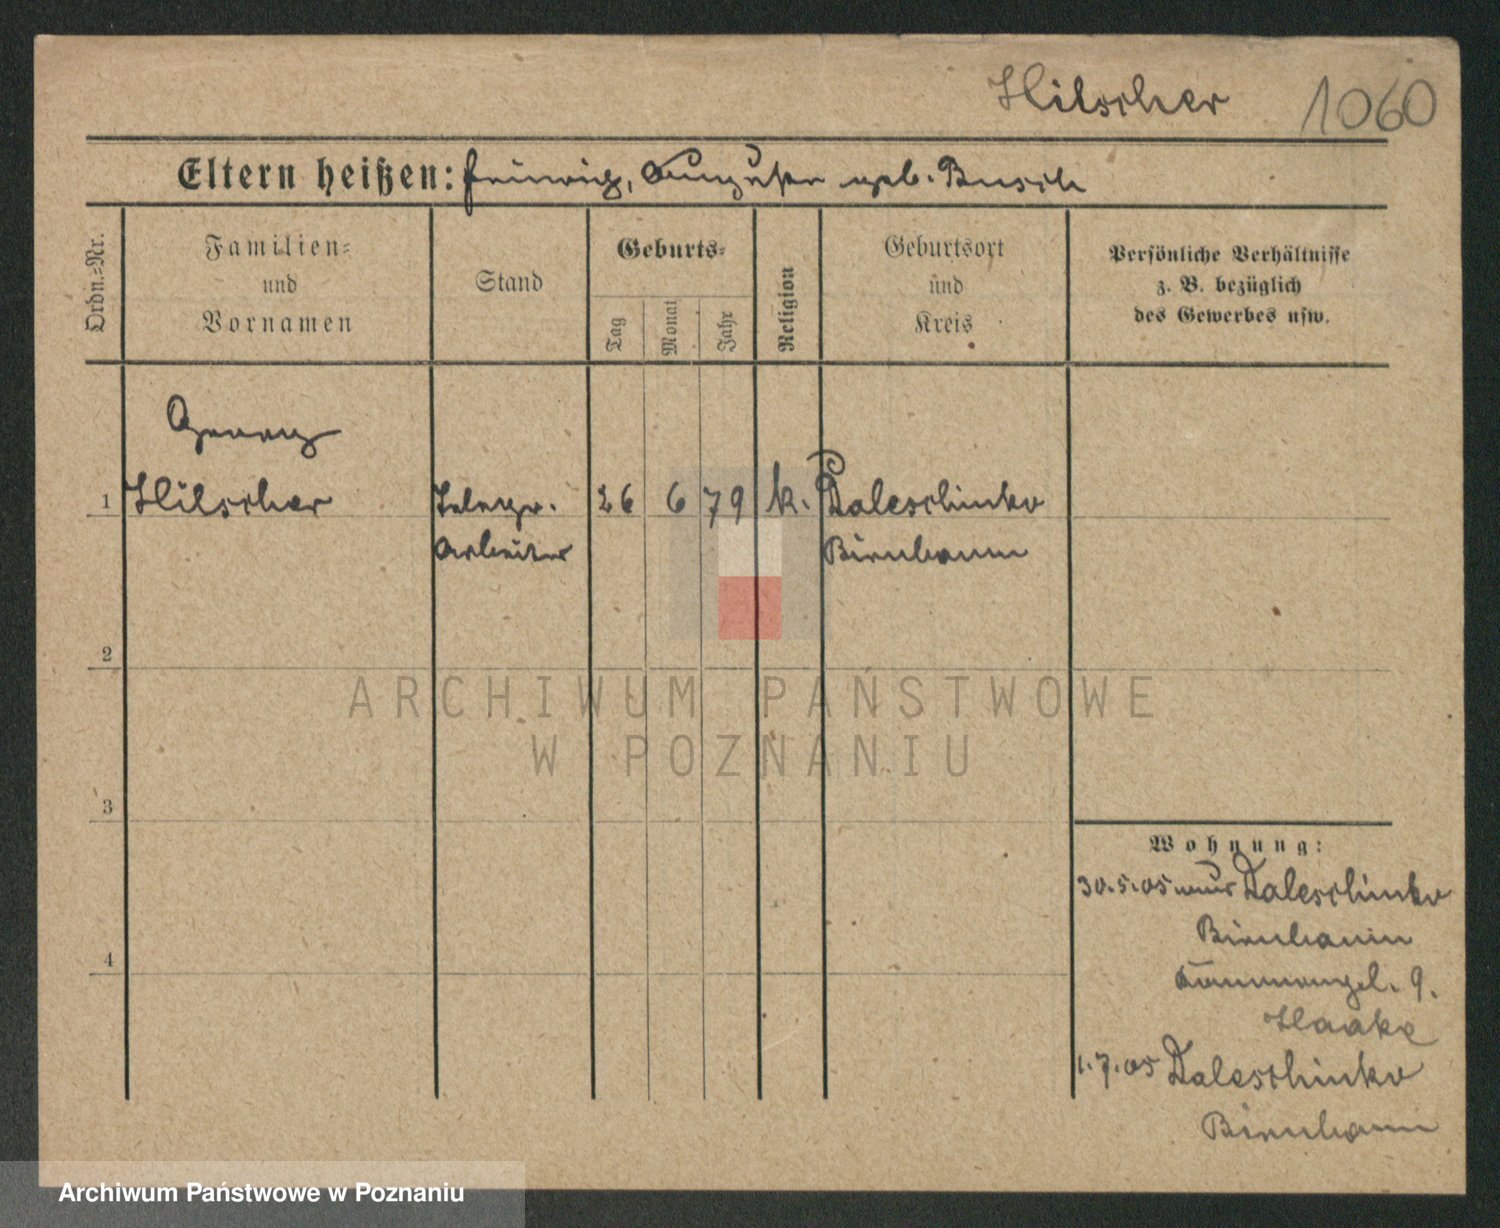 Hilscher 1060
Eltern heißen: Heinrich, Auguste geb. Busch
Ordn.=Nr.
Familien=
und
Vornamen
Stand
Geburts=
Tag
Monat
Jahr
Religion
Geburtsort
und
Kreis
Persönliche Verhältnisse
z. B. bezüglich
des Gewerbes usw.
Georg
1 Hilscher Telegr. 26 6 79 k. Daleschinko
Arbeiter Birnbaum
2
3
4
Wohnung:
30.5.05 Daleschinko
Birnbaum
9.
Haake
1.7.05 Daleschinko
Birnbaum
ARCHIWUM PAŃSTWOWE
W POZNANIU
Archiwum Państwowe w Poznaniu